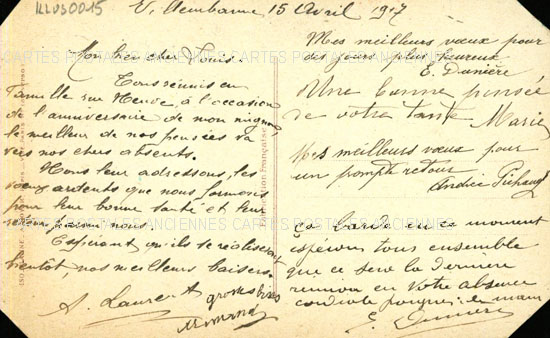 ILLUS0015
Villeurbanne 15 Avril 1917
Mon bien cher Louis.
Tous réunis en
famille sur Herde, à l'occasion
de l'anniversaire de mon mignon
le meilleur de nos pensées va
vers nos chers absents.
Nous leur adressons, les
vœux ardents que nous formons
pour leur bonne santé et leur
retour parmi nous.
Espérant qu'ils se réaliseront
bientôt, nos meilleurs baisers.
A. Laurent
gros bises
Armand
Mes meilleurs vœux pour
des jours plus heureux
E. Danière
Une bonne pensée
de votre tante Marie
Mes meilleurs vœux pour
un prompt retour
Andrée
Ça barde en ce moment
espérons tous ensemble
que ce sera la dernière
réunion en votre absence
cordiale poignée de main
E. Danière
CARTES POSTALES ANCIENNES CARTES POSTALES ANCIENNES
CARTES POSTALES ANCIENNES CARTES POSTALES ANCIENNES